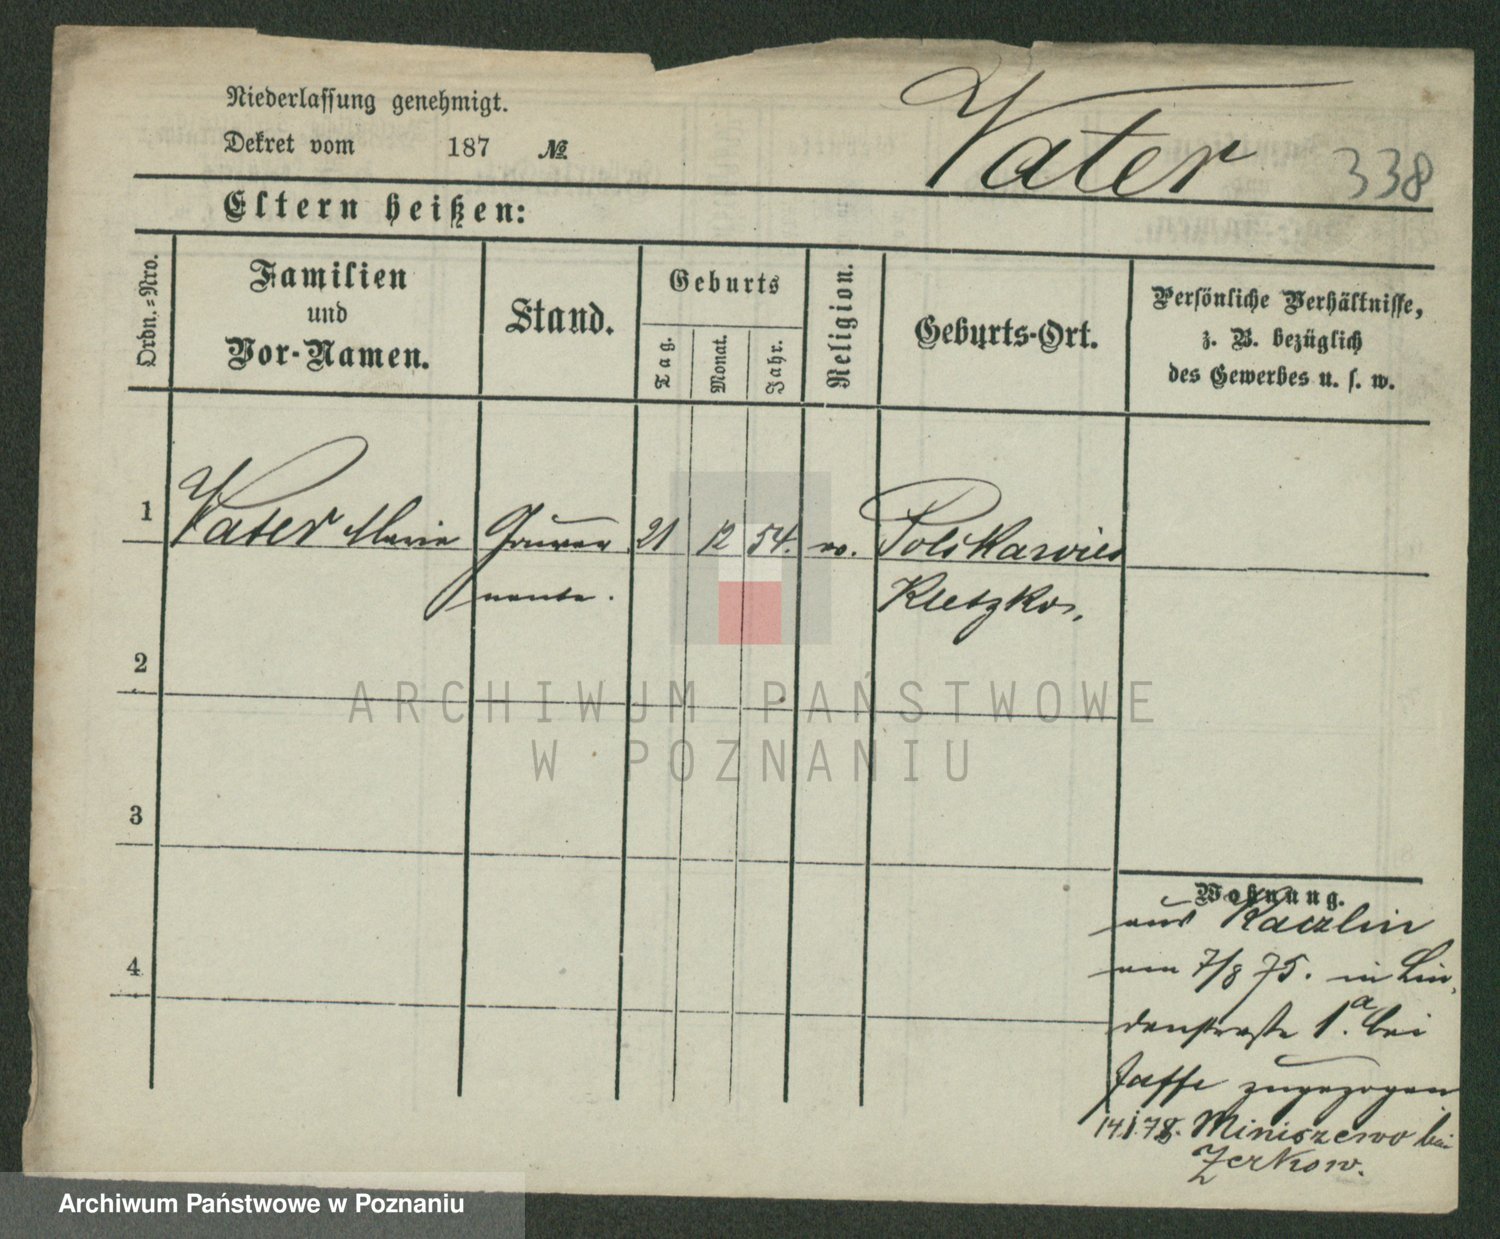 Niederlassung genehmigt.
Dekret vom 187 №
Vater 338
Eltern heißen:
Ordn.=Nro.
Familien
und
Vor-Namen.
Stand.
Geburts
Tag.
Monat.
Jahr.
Religion.
Geburts-Ort.
Persönliche Verhältnisse,
z. B. bezüglich
des Gewerbes u. s. w.
1 Vater Marie Gouver 21 12 54. ev. Polskawies
nante. Kletzko.
2
3
4
Wohnung.
aus Kaczlin
am 7/8 75. in Lin,
denstraße 1a. bei
Jaffe zugezogen
14.1.78. Miniszewo bei
Zerkow.
ARCHIWUM PAŃSTWOWE
W POZNANIU
Archiwum Państwowe w Poznaniu